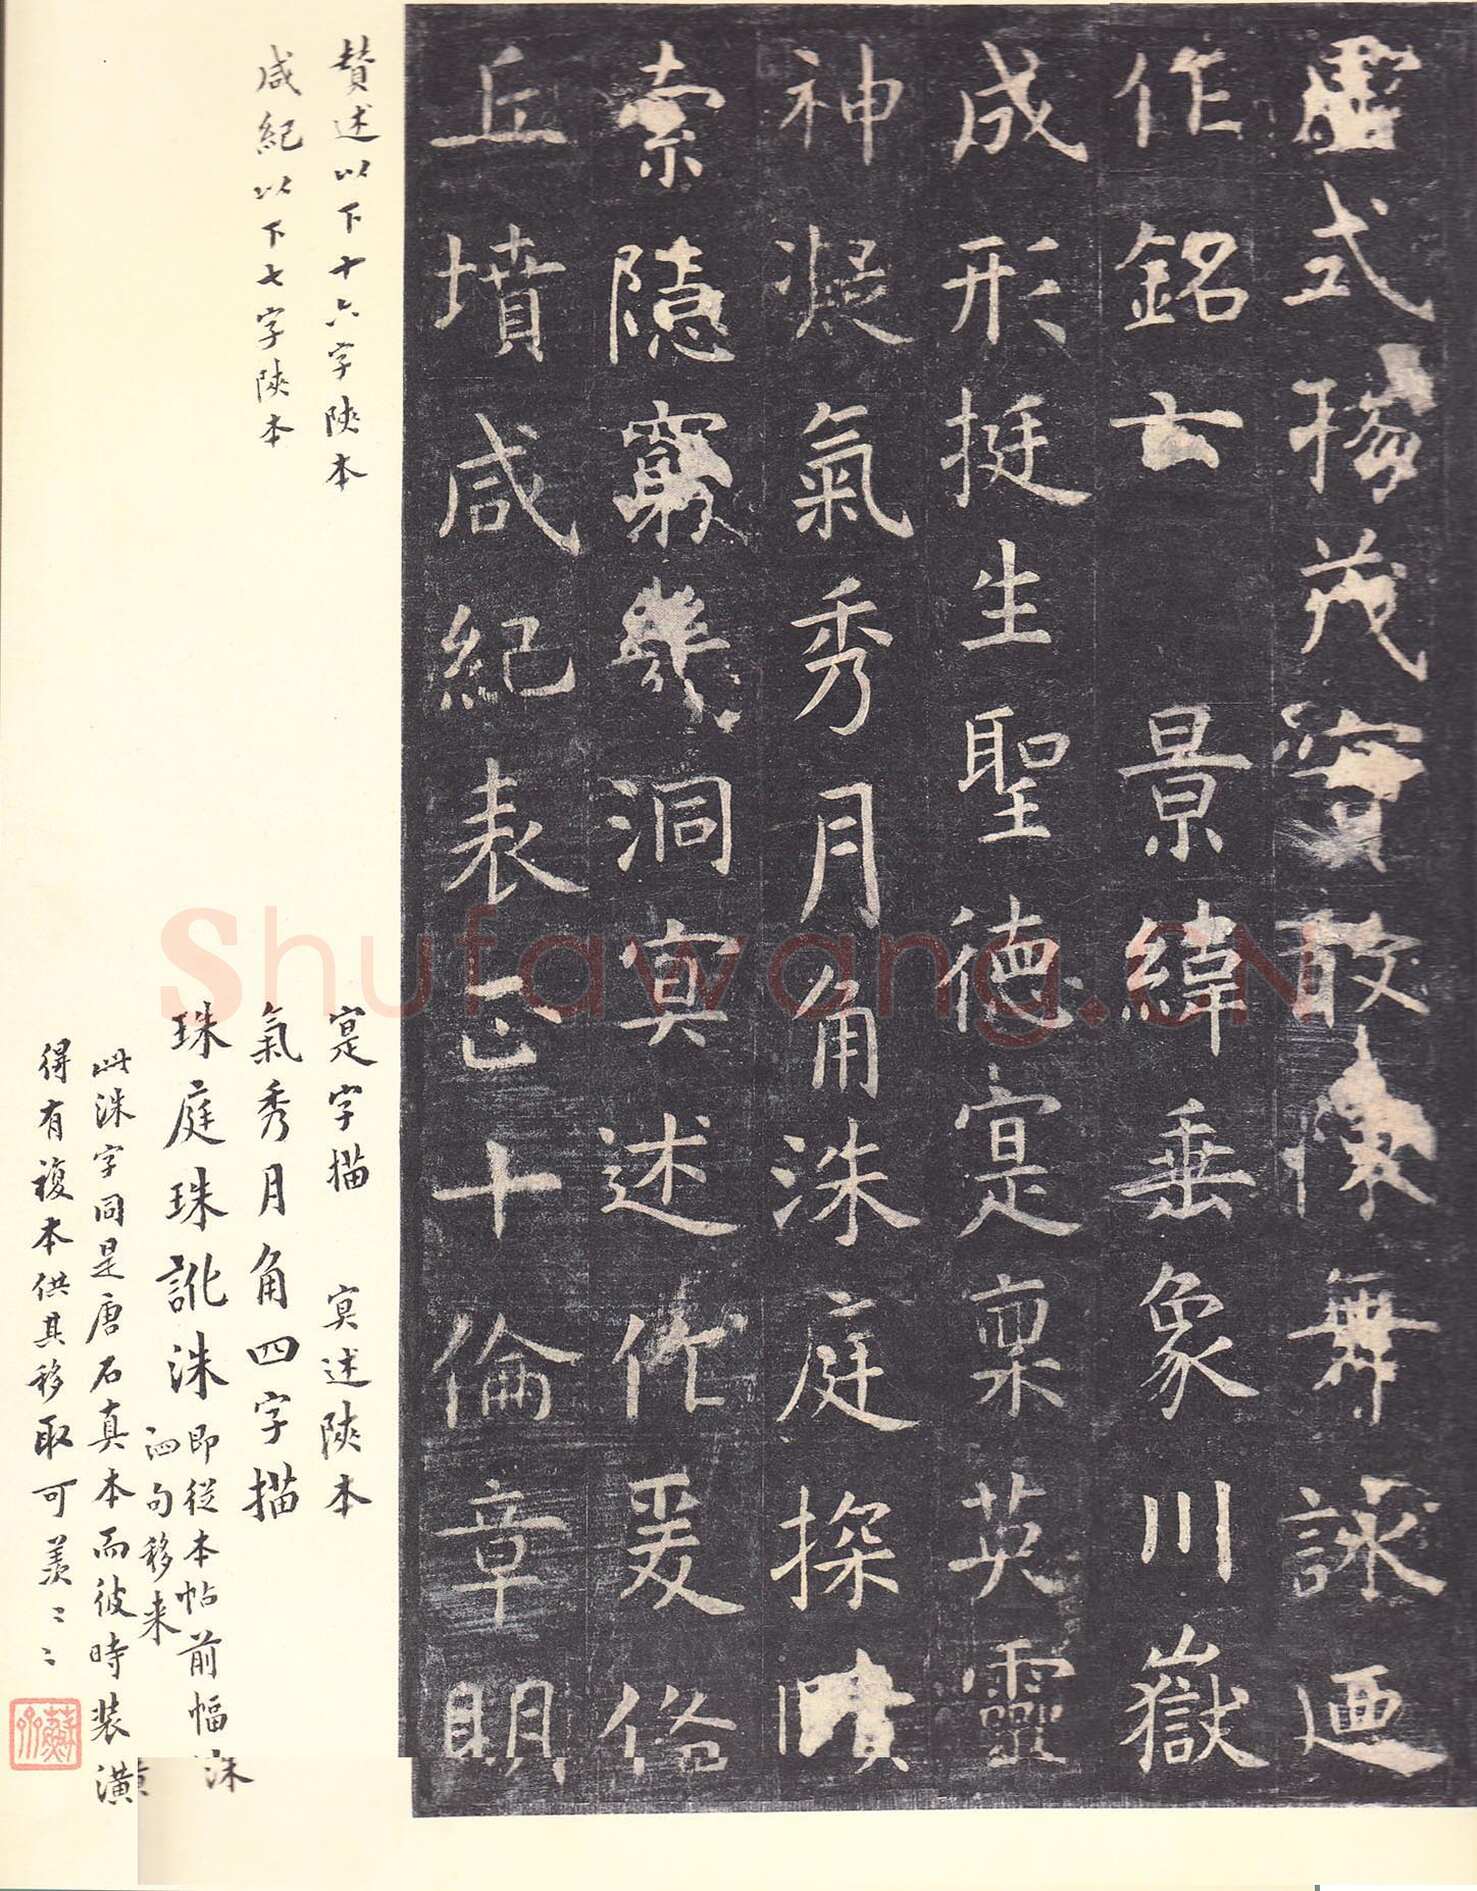 虛式揚茂實敢陳舞詠迺
作銘云　景緯垂象川嶽
成形挺生聖德寔稟英靈
神凝氣秀月角洙庭探賾
索隱窮幾洞冥述作爰俻
丘墳咸紀表正十倫章明
贊述以下十六字陝本
咸紀以下七字陝本
寔字描　冥述陝本
氣秀月角四字描
珠庭珠訛洙即從本帖前幅洙
泗句移来
此洙字同是唐石真本而彼時装潢
得有複本供其移取可羨〻〻
Shufawang.CN